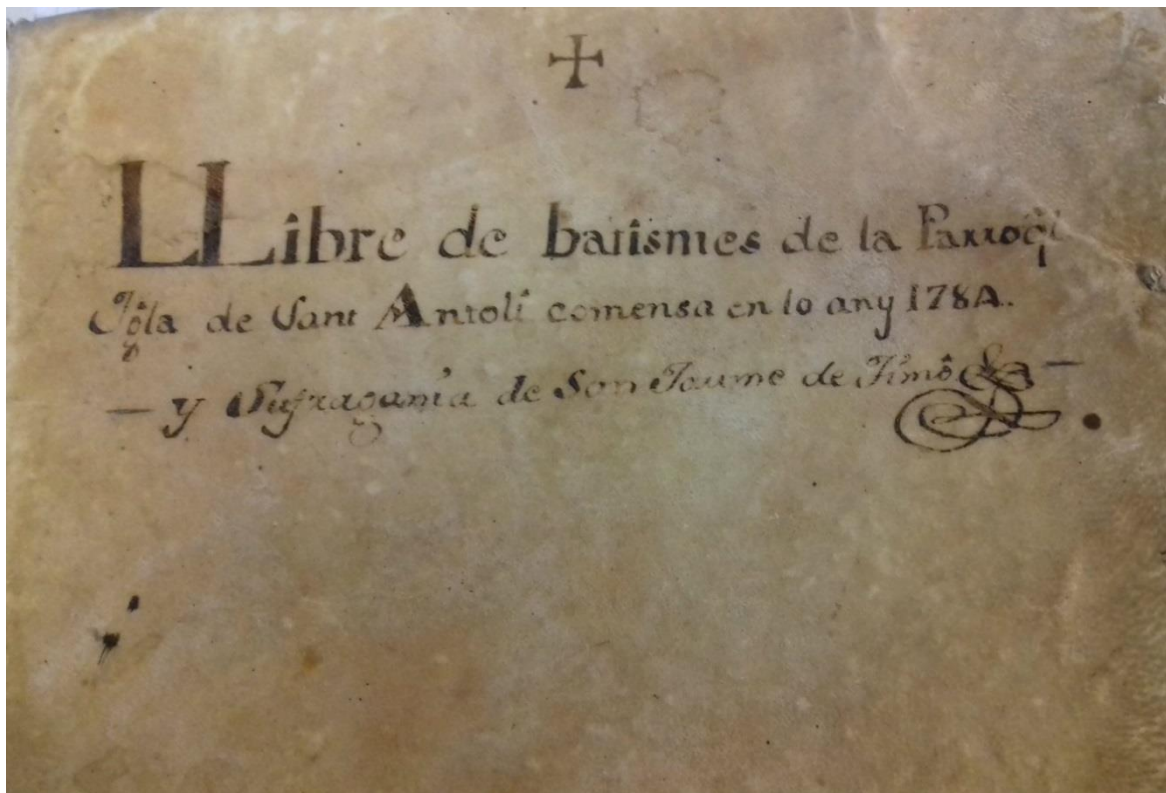 LLibre de batismes de la Parroql
Igla de Sant Antolí comensa en lo any 1784.
— y Sufragania de San Jaume de Timô —